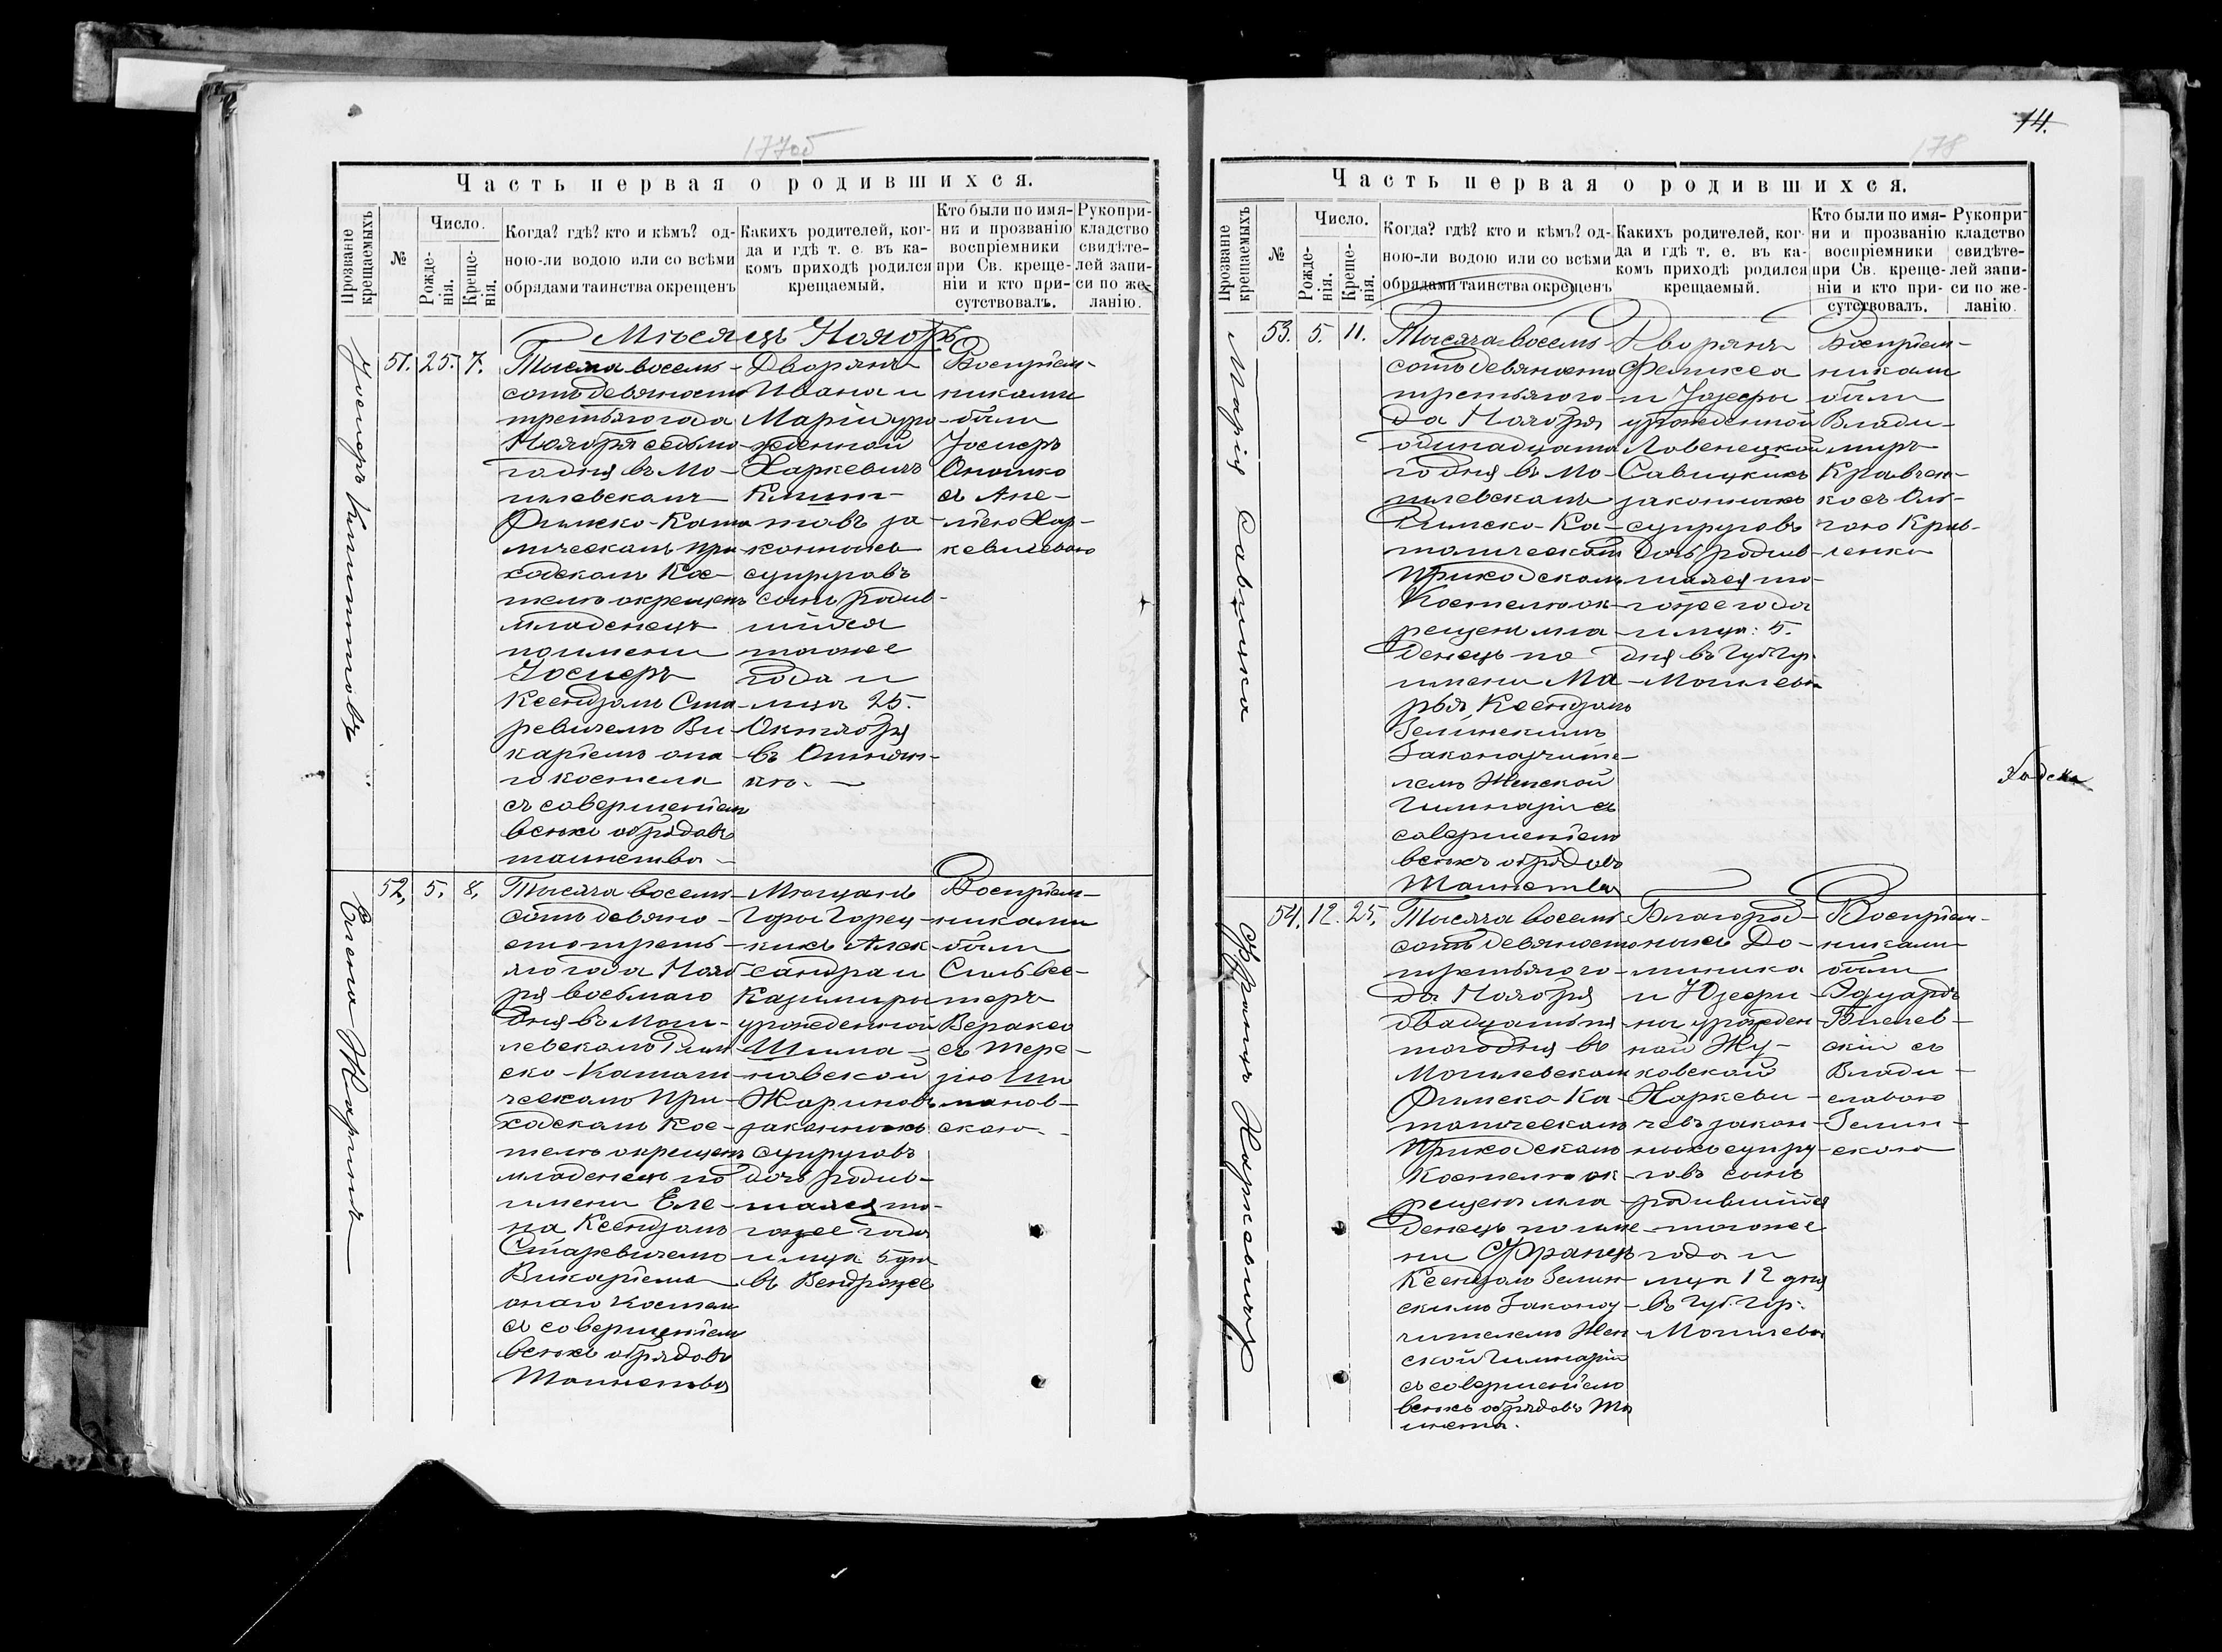 177об
Часть первая о родившихся.
Прозваніе крещаемыхъ
№
Число.
Рожде-
нія.
Креще-
нія.
Когда? гдѣ? кто и кѣмъ? од-
ною-ли водою или со всѣми
обрядами таинства окрещенъ
Какихъ родителей, ког-
да и гдѣ т. е. въ ка-
комъ приходѣ родился
крещаемый.
Кто были по имя-
ни и прозванію
воспріемники
при Св. креще-
ніи и кто при-
сутствовалъ.
Рукопри-
кладство
свидѣте-
лей запи-
си по же-
ланію.
Мѣсяцъ Ноябрь
51. 25. 7.
Тысяча восемь-
сотъ девяносто
третьяго года
Ноября седьмо
го дня въ Мо-
гилевскомъ
Римско-Като
лическомъ при
ходскомъ Кос-
телѣ окрещенъ
младенецъ
по имени
Іосифъ
Ксендзомъ Ста
ревичемъ Ви
каріемъ она
го костела
съ совершеніемъ
всѣхъ обрядовъ
таинства
Дворянъ
Ивана и
Маріи уро
жденной
Харкевичъ
за
конныхъ
супруговъ
сынъ родив-
шійся
тогоже
года и
мца 25.
Октября
въ
Воспріем-
никами
были
Іосифъ
Оношко
съ Ане-
лею Хар-
кевичевою
52. 5. 8.
Елена Жаринъ
Тысяча восемь-
сотъ девяно-
сто треть-
яго года Нояб
ря восьмаго
дня въ Моги-
левскомъ Рим
ско-Католи
ческомъ При-
ходскомъ Кос-
телѣ окрещенъ
младенецъ по
имени Еле-
на Ксендзомъ
Старевичемъ
Викаріемъ
онаго Костела
съ совершеніемъ
всѣхъ обрядовъ
Таинства
Мѣщанъ
Горы Горец-
кихъ Алек-
сандра и
Казимиры
урожденной
Шима-
новской
Жариновъ
законныхъ
супруговъ
дочь родив-
шаяся то-
гоже года
и мца 5 дня
въ Вендрожѣ
Воспріем-
никами
были
Сильвес-
теръ
Вераксо
съ Тере-
зіею Ши
манов-
скою
14.
178
Часть первая о родившихся.
Прозваніе крещаемыхъ
№
Число.
Рожде-
нія.
Креще-
нія.
Когда? гдѣ? кто и кѣмъ? од-
ною-ли водою или со всѣми
обрядами таинства окрещенъ
Какихъ родителей, ког-
да и гдѣ т. е. въ ка-
комъ приходѣ родился
крещаемый.
Кто были по имя-
ни и прозванію
воспріемники
при Св. креще-
ніи и кто при-
сутствовалъ.
Рукопри-
кладство
свидѣте-
лей запи-
си по же-
ланію.
53. 5. 11.
Марія Савицка
Тысяча восемь
сотъ девяносто
третьяго го
да Ноября
одинадцата
го дня въ Мо-
гилевскомъ
Римско-Ка-
толическомъ
Приходскомъ
Костелѣ ок-
рещенъ мла
денецъ по
имени Ма
рья, Ксендзомъ
Зелинскимъ
Законоучите-
лемъ Женской
Гимназіи съ
совершеніемъ
всѣхъ обрядовъ
Таинства
Дворянъ
Феликса
и Юзефы
урожденной
Савицкихъ
законныхъ
супруговъ
дочь родив-
шаяся то-
гоже года
и мца: 5.
дня въ Губ. Гор.
Могилевѣ
Воспріем-
никами
были
Влади-
миръ
Кравчен-
ко съ Оль-
гою Крав-
ченко
54. 12. 25.
Францъ Харкевичъ
Тысяча восемь
сотъ девяносто
третьяго го-
да Ноября
двадцать пя
таго дня въ
Могилевскомъ
Римско Ка-
толическомъ
Приходскомъ
Костелѣ ок
рещенъ мла
денецъ по име
ни Францъ
Ксендзомъ Зелин
скимъ Законоу-
чителемъ Жен
ской Гимназіи
съ совершеніемъ
всѣхъ обрядовъ Та
инства.
Благород-
ныхъ До-
миника
и Юзефи
ны урожден
ной Жу-
ковской
Харкеви-
чевъ закон-
ныхъ супру
говъ сынъ
родившійся
тогоже
года и
мца 12 дня
въ Губ. Гор.
Могилевѣ
Воспріем-
никами
были
Эдуардъ
скій съ
Влади-
славою
Зелин-
скою